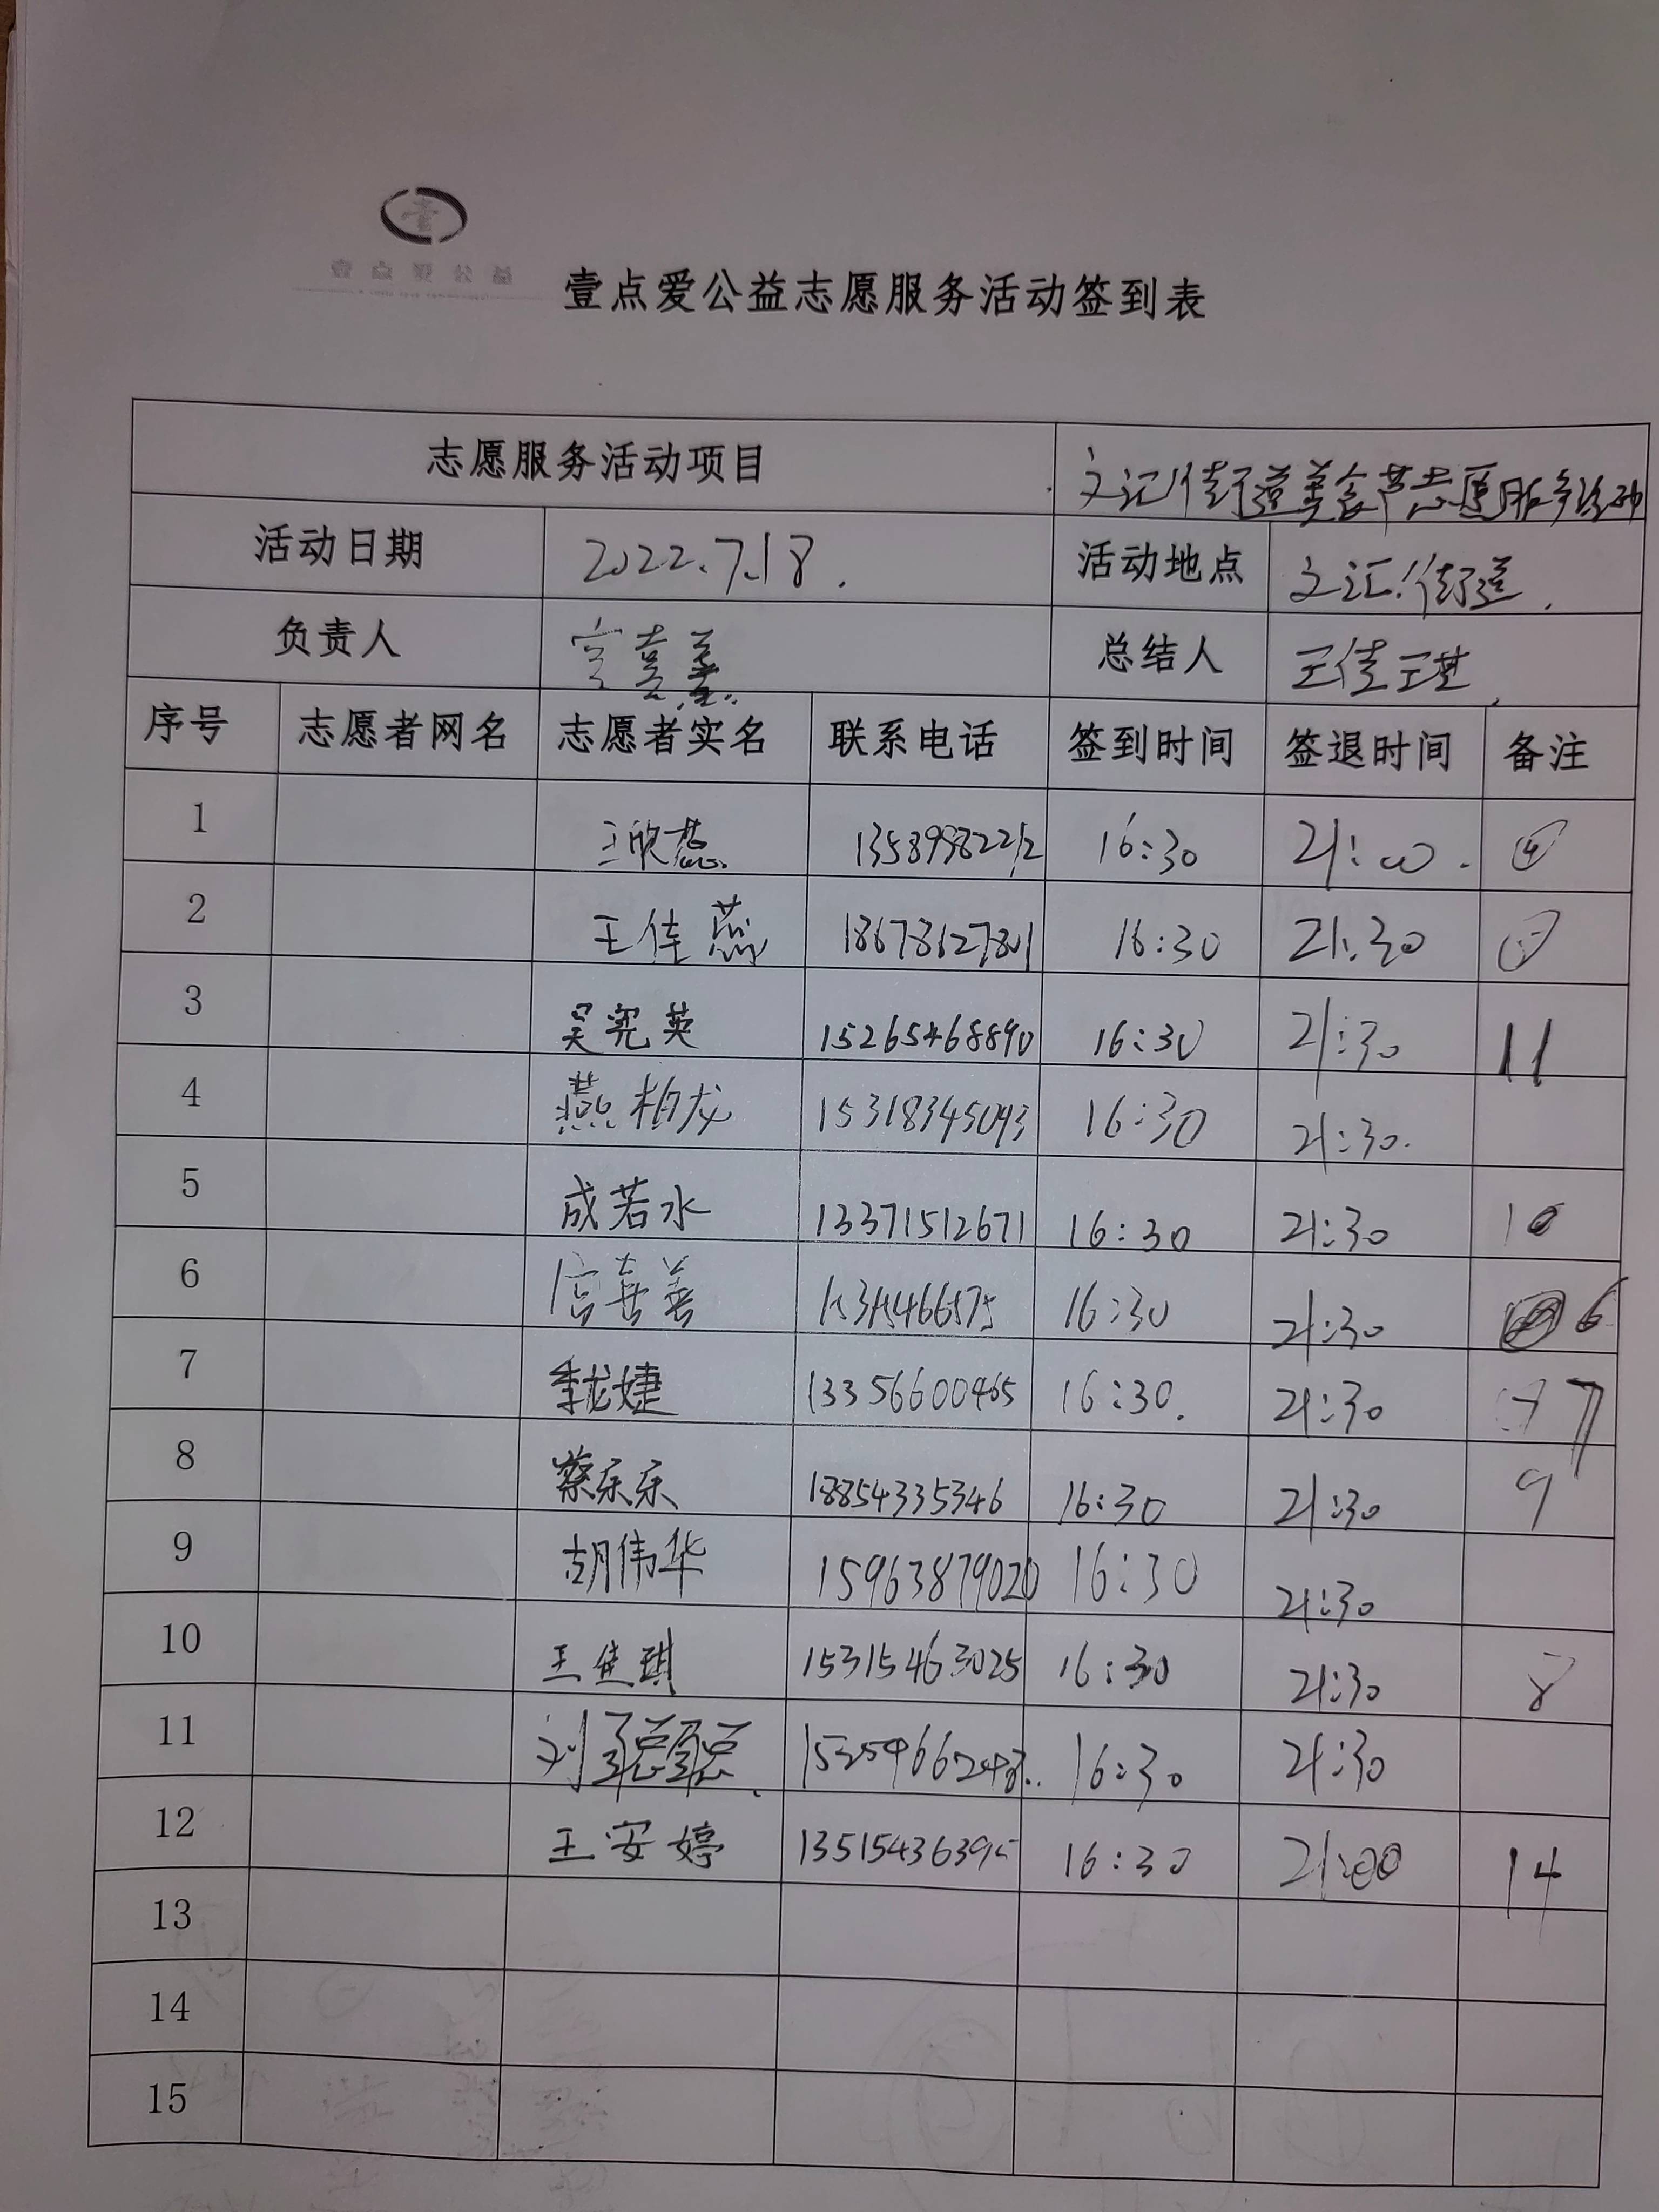 壹点爱公益
壹点爱公益志愿服务活动签到表
志愿服务活动项目 文汇街道美食节志愿服务活动
活动日期 2022.7.18. 活动地点 文汇街道.
负责人 宫喜善. 总结人 王佳琪.
序号 志愿者网名 志愿者实名 联系电话 签到时间 签退时间 备注
1 王欣蕊. 16:30 21:00. ④
2 王佳蕊 18678627801 16:30 21:30
3 吴宪英 15265468890 16:30 21:30 11
4 燕柏龙 15318345093 16:30 21:30.
5 成若水 13371512671 16:30 21:30 10
6 宫喜善 16:30 21:30 6
7 季龙婕 13356600465 16:30. 21:30 7
8 蔡东东 18854335346 16:30 21:30 9
9 胡伟华 15963879020 16:30 21:30
10 王佳琪 15315463025 16:30 21:30 8
11 刘聪聪. 16:30 21:30
12 王安婷 13515436395 16:30 21:00 14
13
14
15